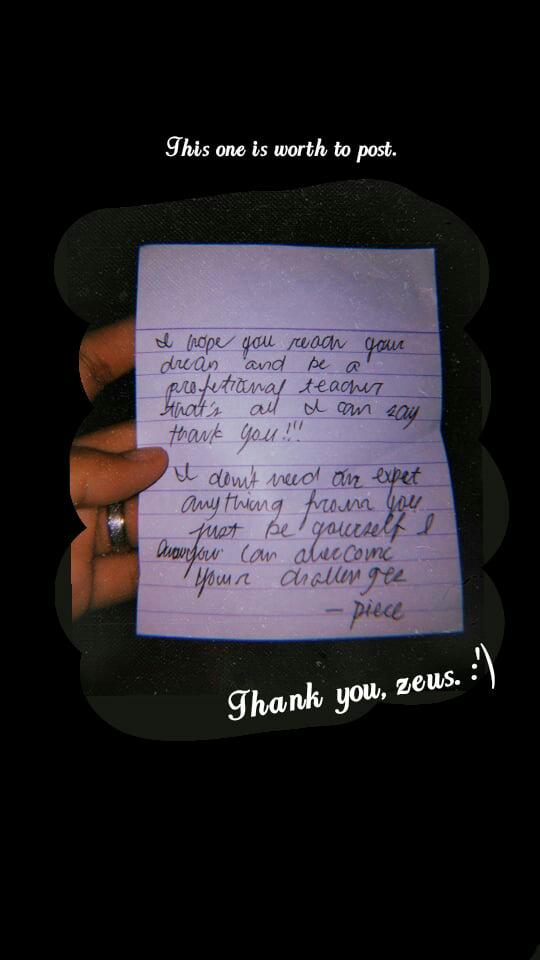 This one is worth to post.
I hope you reach your
dream and be a
profetional teacher
that's all I can say
thank you!!!
I don't need or expet
anything from you
just be yourself I
your can overcome
your challenges
- piece
Thank you, zeus. :')